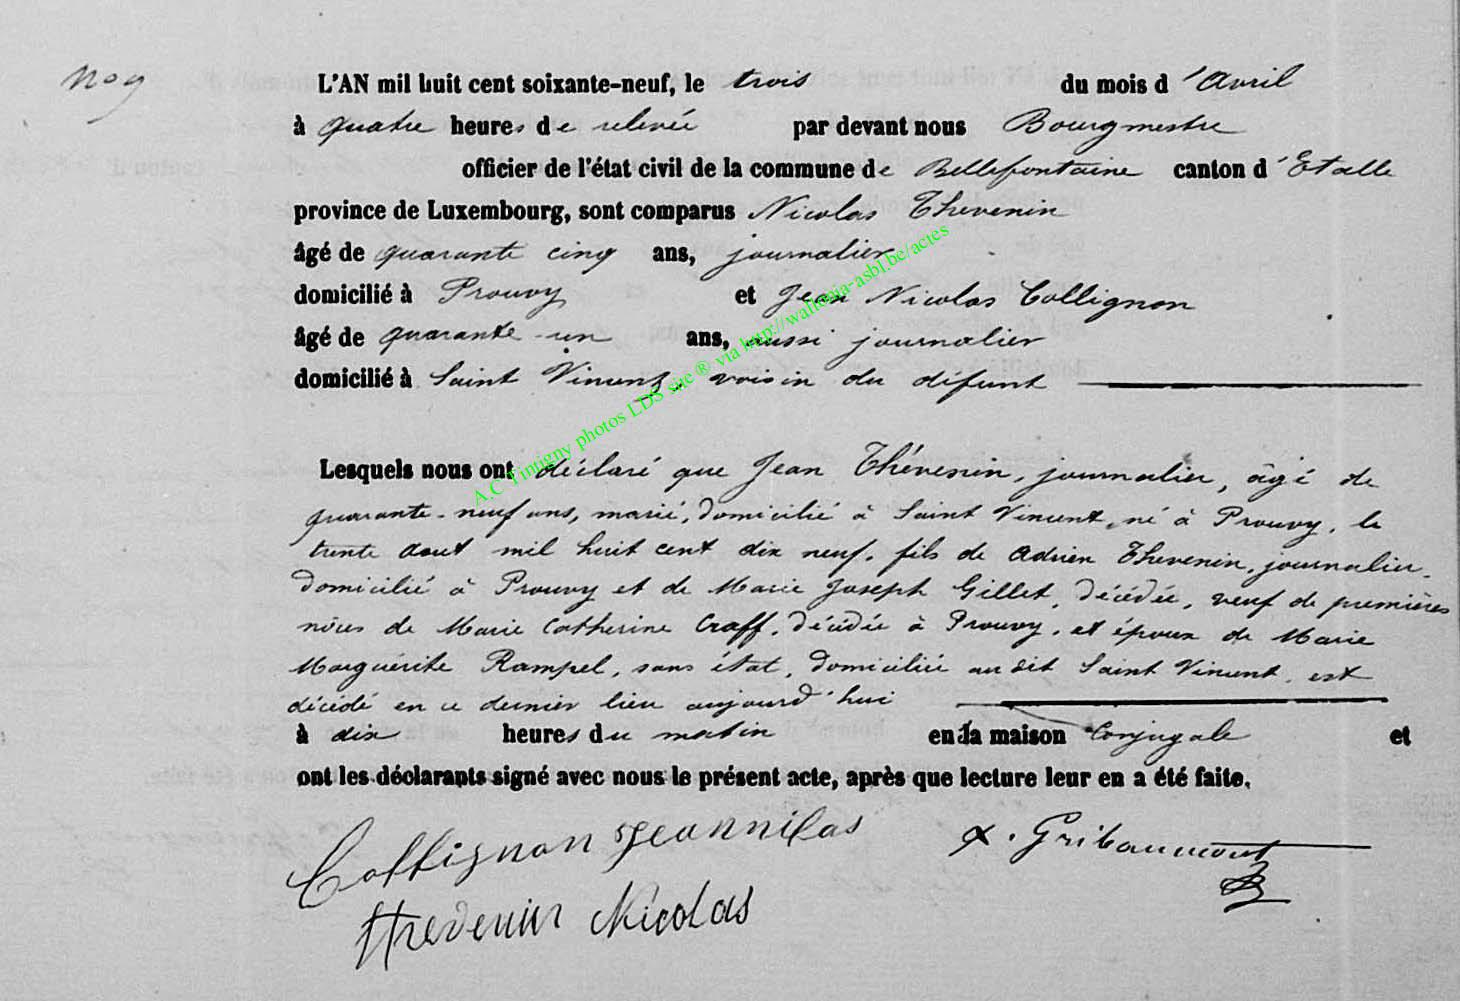 No 9
L'AN mil huit cent soixante-neuf, le trois du mois d'Avril
à quatre heures de relevée par devant nous Bourgmestre
officier de l'état civil de la commune de Bellefontaine canton d'Etalle
province de Luxembourg, sont comparus Nicolas Thevenin
âgé de quarante cinq ans, journalier
domicilié à Prouvy et Jean Nicolas Collignon
âgé de quarante-un ans, aussi journalier
domicilié à Saint Vincent, voisin du défunt
Lesquels nous ont déclaré que Jean Thévenin, journalier, âgé de
quarante-neuf ans, marié, domicilié à Saint Vincent, né à Prouvy, le
trente aout mil huit cent dix neuf, fils de Adrien Thevenin, journalier,
domicilié à Prouvy et de Marie Joseph Gillet, décédée, veuf de premières
nôces de Marie Catherine Craff, décédée à Prouvy, et époux de Marie
Marguérite Rampel, sans état, domiciliée au dit Saint Vincent, est
décédé en ce dernier lieu aujourd'hui
à dix heures du matin en la maison Conjugale et
ont les déclarants signé avec nous le présent acte, après que lecture leur en a été faite.
Collignon jeannilas
thevenin Nicolas
Gribaumont
A.C Tintigny photos LDS site ® via http://wallonia-asbl.be/actes